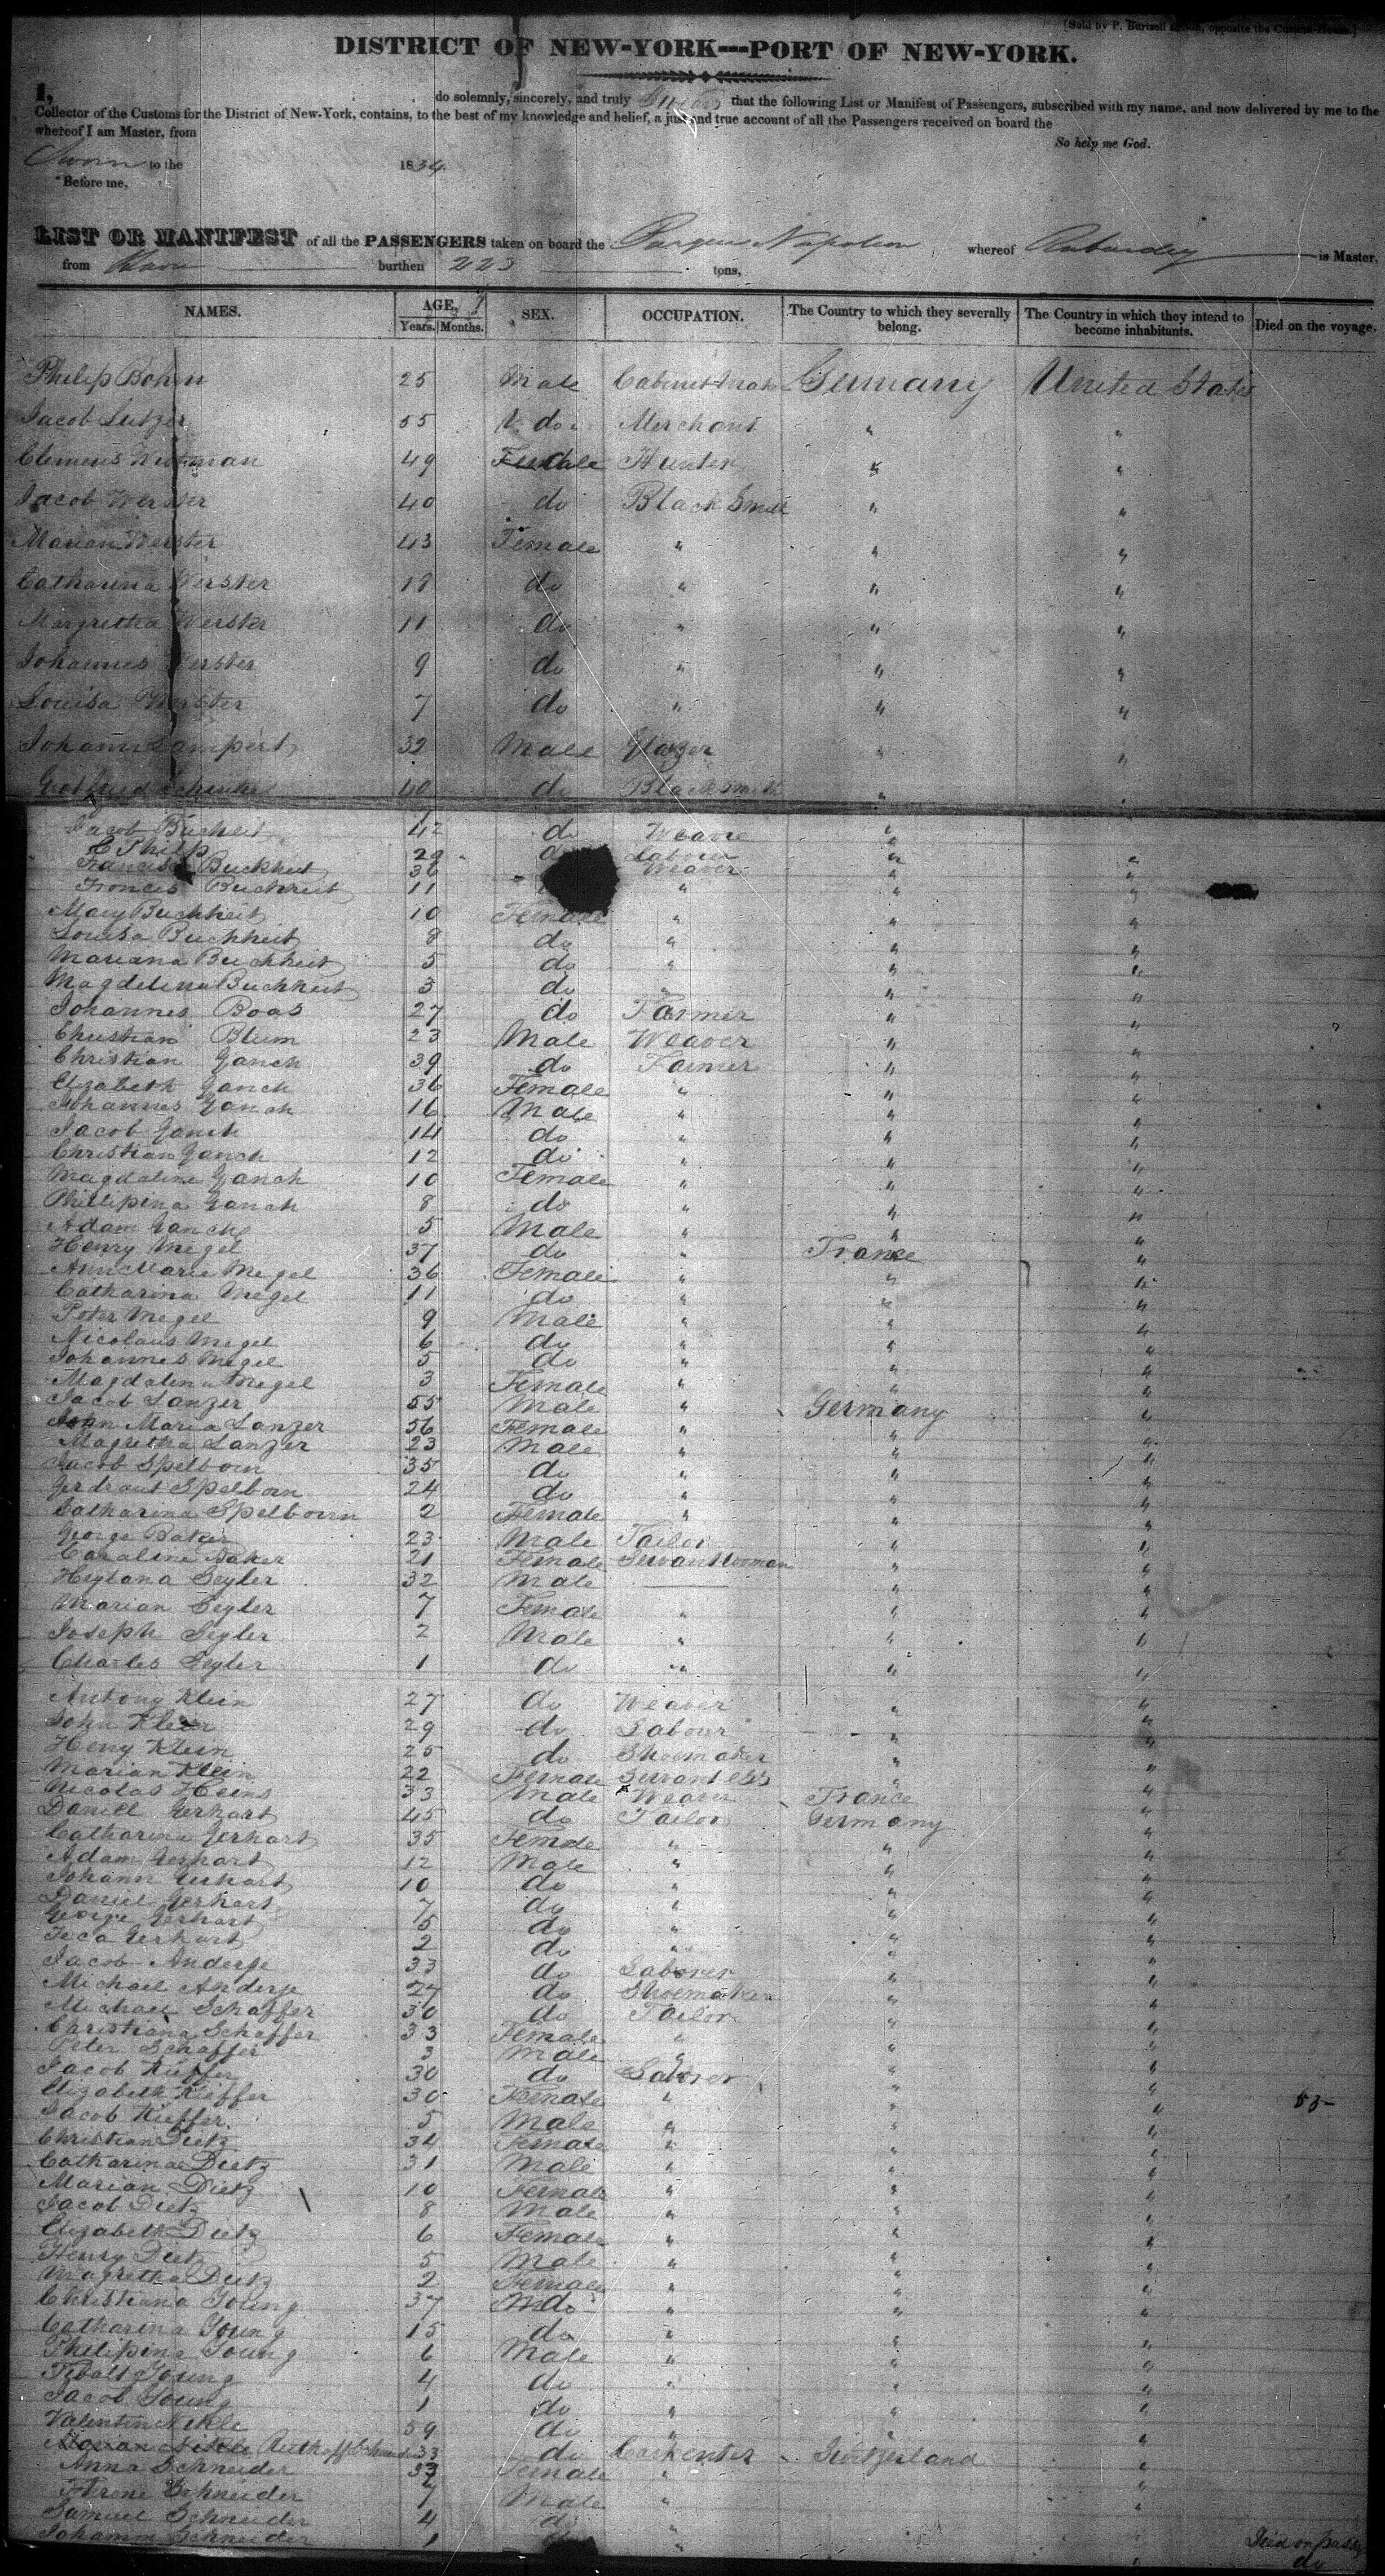 [Sold by P. Burtsell & Son, opposite the Custom-House.]
DISTRICT OF NEW-YORK---PORT OF NEW-YORK.
I, do solemnly, sincerely, and truly that the following List or Manifest of Passengers, subscribed with my name, and now delivered by me to the
Collector of the Customs for the District of New-York, contains, to the best of my knowledge and belief, a just and true account of all the Passengers received on board the
whereof I am Master, from
So help me God.
Sworn to the 1834.
Before me,
LIST OR MANIFEST of all the PASSENGERS taken on board the Napoleon whereof is Master,
from burthen 223 tons,
NAMES. AGE, SEX. OCCUPATION. The Country to which they severally belong. The Country in which they intend to become inhabitants. Died on the voyage.
Years. Months.
Philip Bohm 25 Male Cabinet Germany United States
Jacob 55 do Merchant " "
Clemens 49 Hunter " "
Jacob Werster 40 do Black Smith " "
Marian Werster 43 Female " " "
Catharina Werster 18 do " " "
Margretha Werster 11 do " " "
Johannes Werster 9 do " " "
Louisa Werster 7 do " " "
Johann Lampert 32 Male Glazer " "
40 do Blacksmith " "
Jacob Bucheit 42 do "
Philip 29 Labour " "
Buckheit 36 Weaver " "
Francis Buchheit 11 " " "
Mary Buchheit 10 Female " " "
Louisa Buchheit 8 do " " "
Mariana Buchheit 5 do " " "
Magdelina Buchheit 3 do " " "
Johannes Boas 27 do Farmer " "
Christian Blum 23 Male Weaver " "
Christian Ganch 39 do Farmer " "
Elizabeth Ganch 36 Female " " "
Johannes Ganch 16 Male " " "
Jacob Ganch 14 do " " "
Christian Ganch 12 do " " "
Magdaline Ganch 10 Female " " "
Phillipina Ganch 8 do " " "
Adam Ganch 5 Male " " "
Henry Megel 37 do " France "
Ann Marie Megel 36 Female " " "
Catharina Megel 11 do " " "
Peter Megel 9 Male " " "
Nicolaus Megel 6 do " " "
Johannes Megel 5 do " " "
Magdalena Megel 3 Female " " "
Jacob Lanzer 55 Male " Germany "
Maria Lanzer 56 Female " " "
Magretha Lanzer 23 Male " " "
Jacob Spelborn 35 do " " "
Gerdraut Spelborn 24 do " " "
Catharina Spelborn 2 Female " " "
George Baker 23 Male Tailor " "
Caraline Baker 21 Female Servant Woman " "
Seyler 32 Male " "
Marian Seyler 7 Female " " "
Joseph Seyler 2 Male " " "
Charles Seyler 1 do " " "
Antony Klein 27 do Weaver " "
John Klein 29 do Labour " "
Henry Klein 25 do Shoemaker " "
Marian Klein 22 Female Servantess " "
Nicolas Heins 33 Male Weaver France "
Daniel Gerhart 45 do Tailor Germany "
Catharina Gerhart 35 Female " " "
Adam Gerhart 12 Male " " "
Johann Gerhart 10 do " " "
Daniel Gerhart 7 do " " "
George Gerhart 5 do " " "
Gerhart 2 do " " "
Jacob 33 do Laborer " "
Michael 27 do Shoemaker " "
Michael Schaffer 30 do Tailor " "
Christiana Schaffer 33 Female " " "
Peter Schaffer 3 Male " " "
Jacob Kieffer 30 do Laborer " "
Elizabeth Kieffer 30 Female " " "
Jacob Kieffer 5 Male " " "
Christian Dietz 34 Female " " "
Catharina Dietz 31 Male " " "
Marian Dietz 10 Female " " "
Jacob Dietz 8 Male " " "
Elizabeth Dietz 6 Female " " "
Henry Dietz 5 Male " " "
Magretha Dietz 2 Female " " "
Christiana Young 37 do " " "
Catharina Young 15 do " " "
Philipina Young 6 Male " " "
Tibalt Young 4 do " " "
Jacob Young 1 do " " "
Valentin Nikle 59 do " " "
33 do Carpenter "
Anna Schneider 33 Female " "
Schneider 7 Male " "
Samuel Schneider 4 do " "
Johann Schneider 1 "
Died on
do